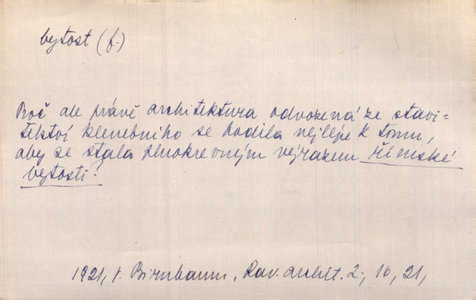 bytost (f.)
Proč ale právě architektura odvozená ze stavi-
telství klenebního se hodila nejlépe k tomu,
aby se stala plnokrevným výrazem římské
bytosti?
1921, V. Birnbaum, Rav. archit. 2, 16, 21,